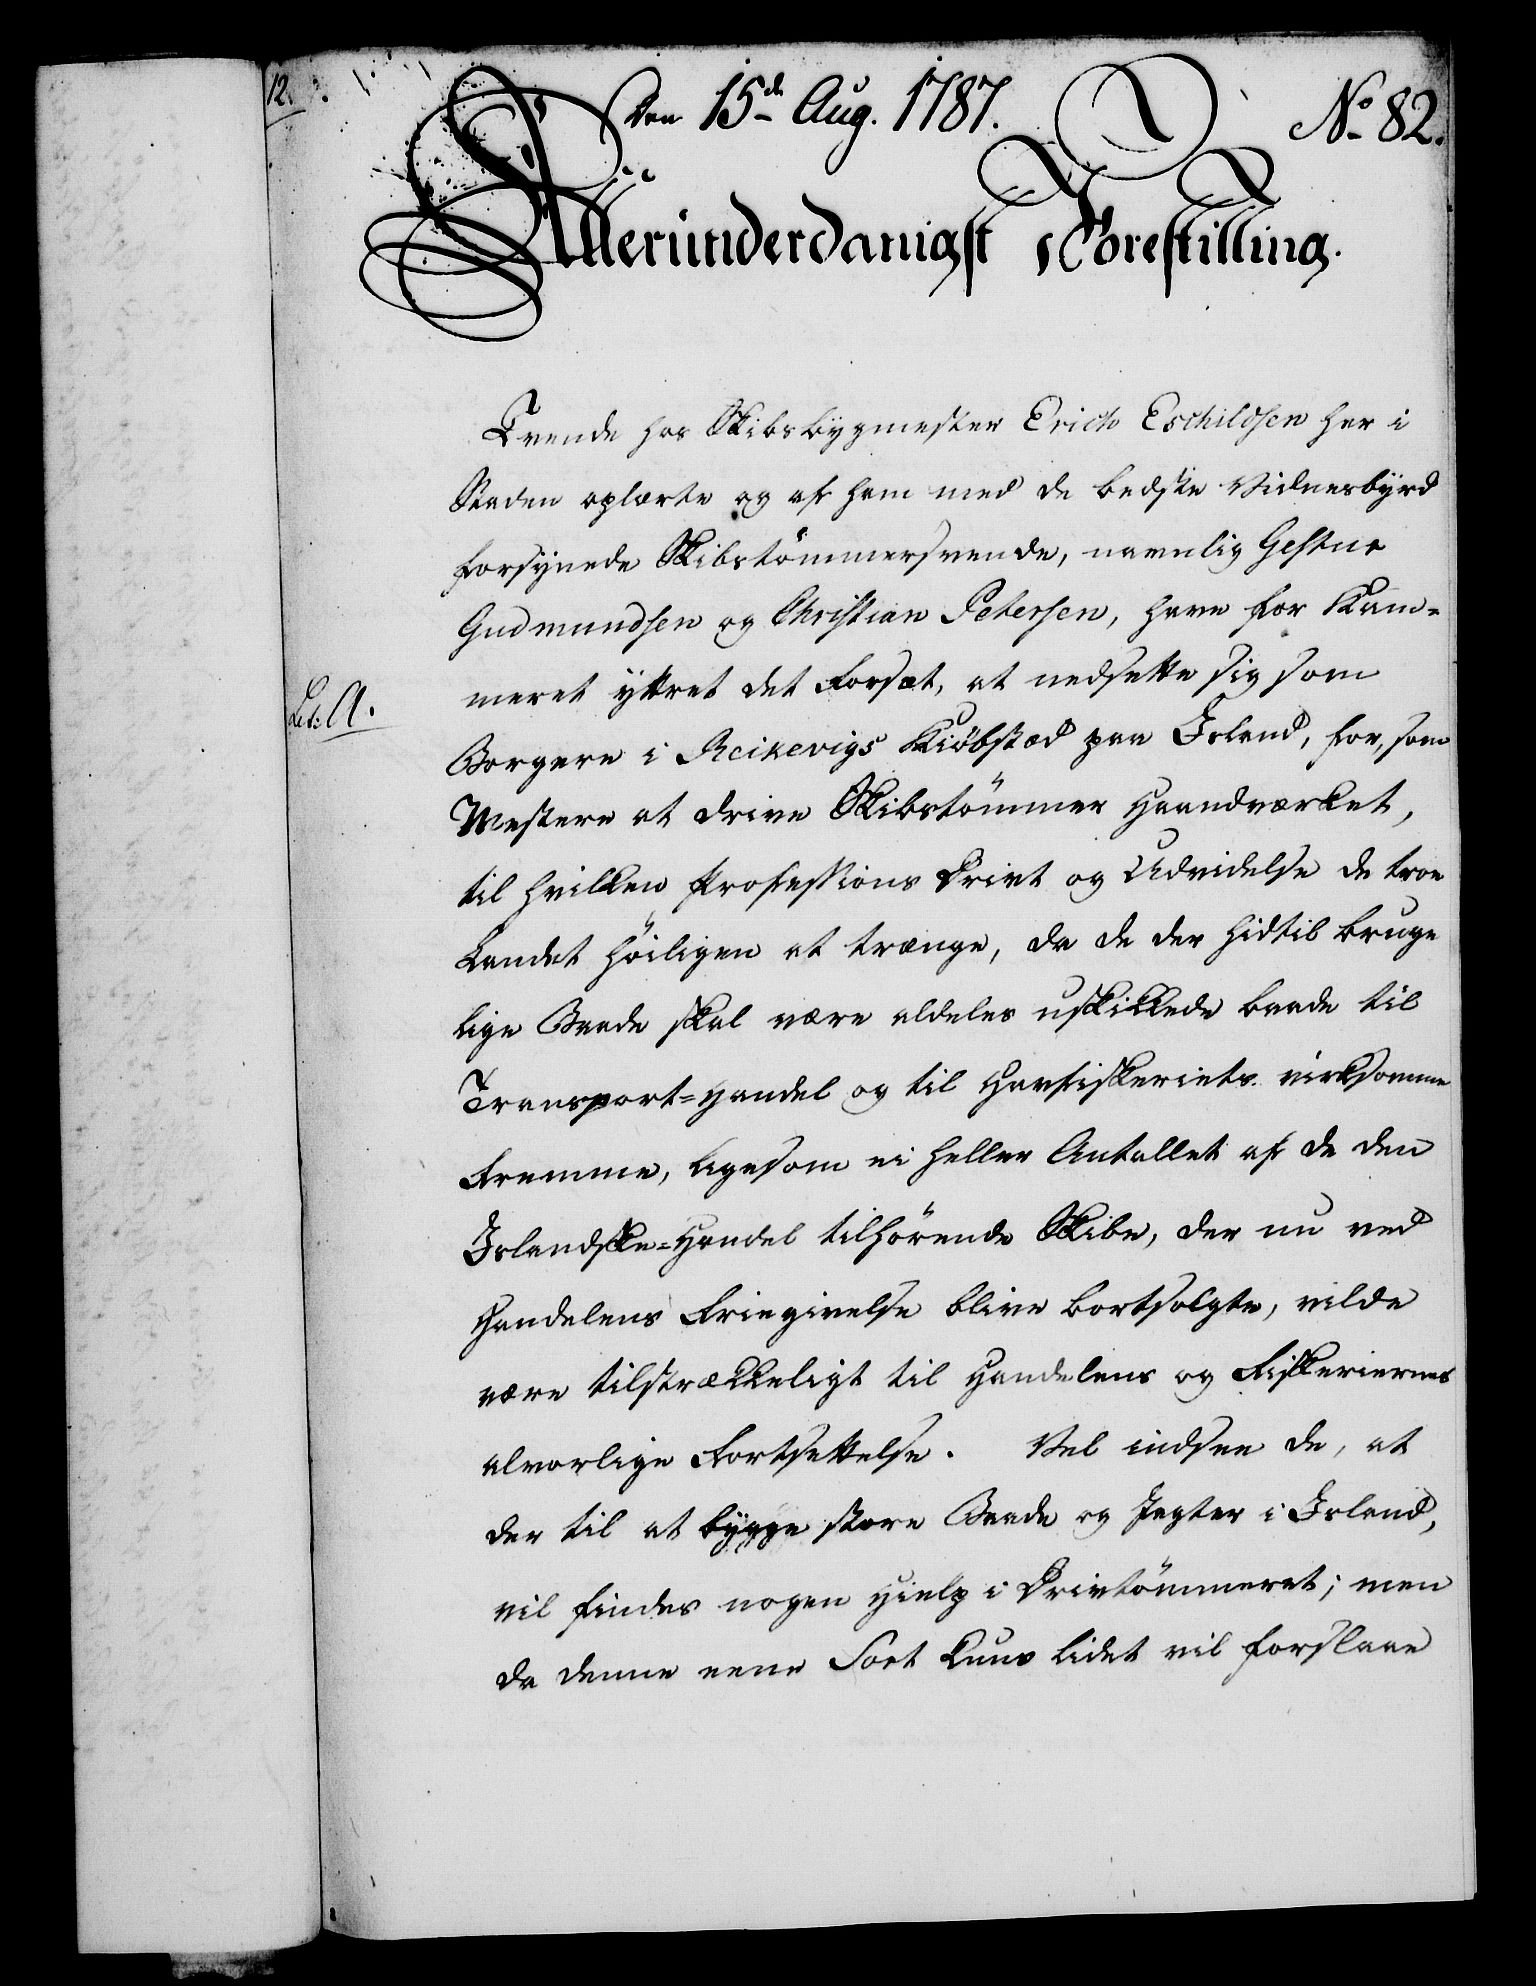 12.
Den 15de Aug. 1787.
No 82.
Allerunderdanigst Forestilling.
Tvende hos Skibsbygmester Erich Eschildsen her i
Staden oplærte og af ham med de bedste Vidnesbyrd
forsynede Skibstömmersvende, navnlig Gestur
Gudmundsen og Christian Petersen, have for Kam=
meret yttret det Forsæt, at nedsette sig som
Lit: A.
Borgere i Reikevigs Kiöbstæd paa Island, for, som
Mestere at drive Skibstömmer Haandværket,
til hvilken Professions Drivt og Udvidelse de troe
Landet höiligen at trænge, da de der hidtil bruge
lige Baade skal være aldeles uskikkede baade til
Transport=Handel og til Havfiskeriets virksomme
Fremme, ligesom ei heller Antallet af de den
Islandske=Handel tilhörende Skibe, der nu ved
Handelens Friegivelse blive bortsolgte, vilde
være tilstrækkeligt til Handelens og Fiskeriernes
alvorlige Fortsettelse. Vel indsee de, at
der til at bygge store Baade og Jagter i Island,
vil findes nogen Hielp i Drivtömmeret; men
da denne eene Sort kuns lidet vil forslaae